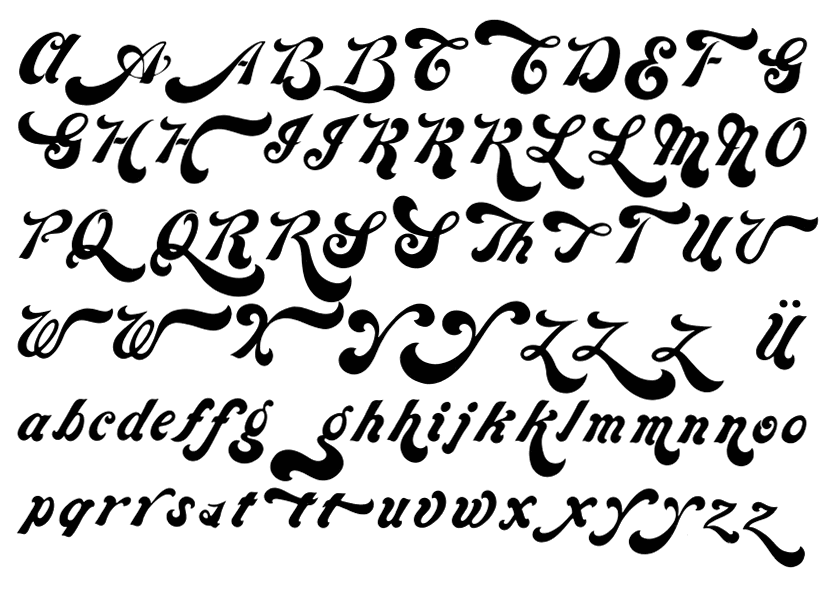 a A A B B C C D E F G
G H H I J K K K L L M N O
P Q Q R R S S Th T T U V
W W X Y Y Z Z Z Ü
a b c d e f f g g h h i j k k l m m n n o o
p q r r s a t t t u v w x x y y z z